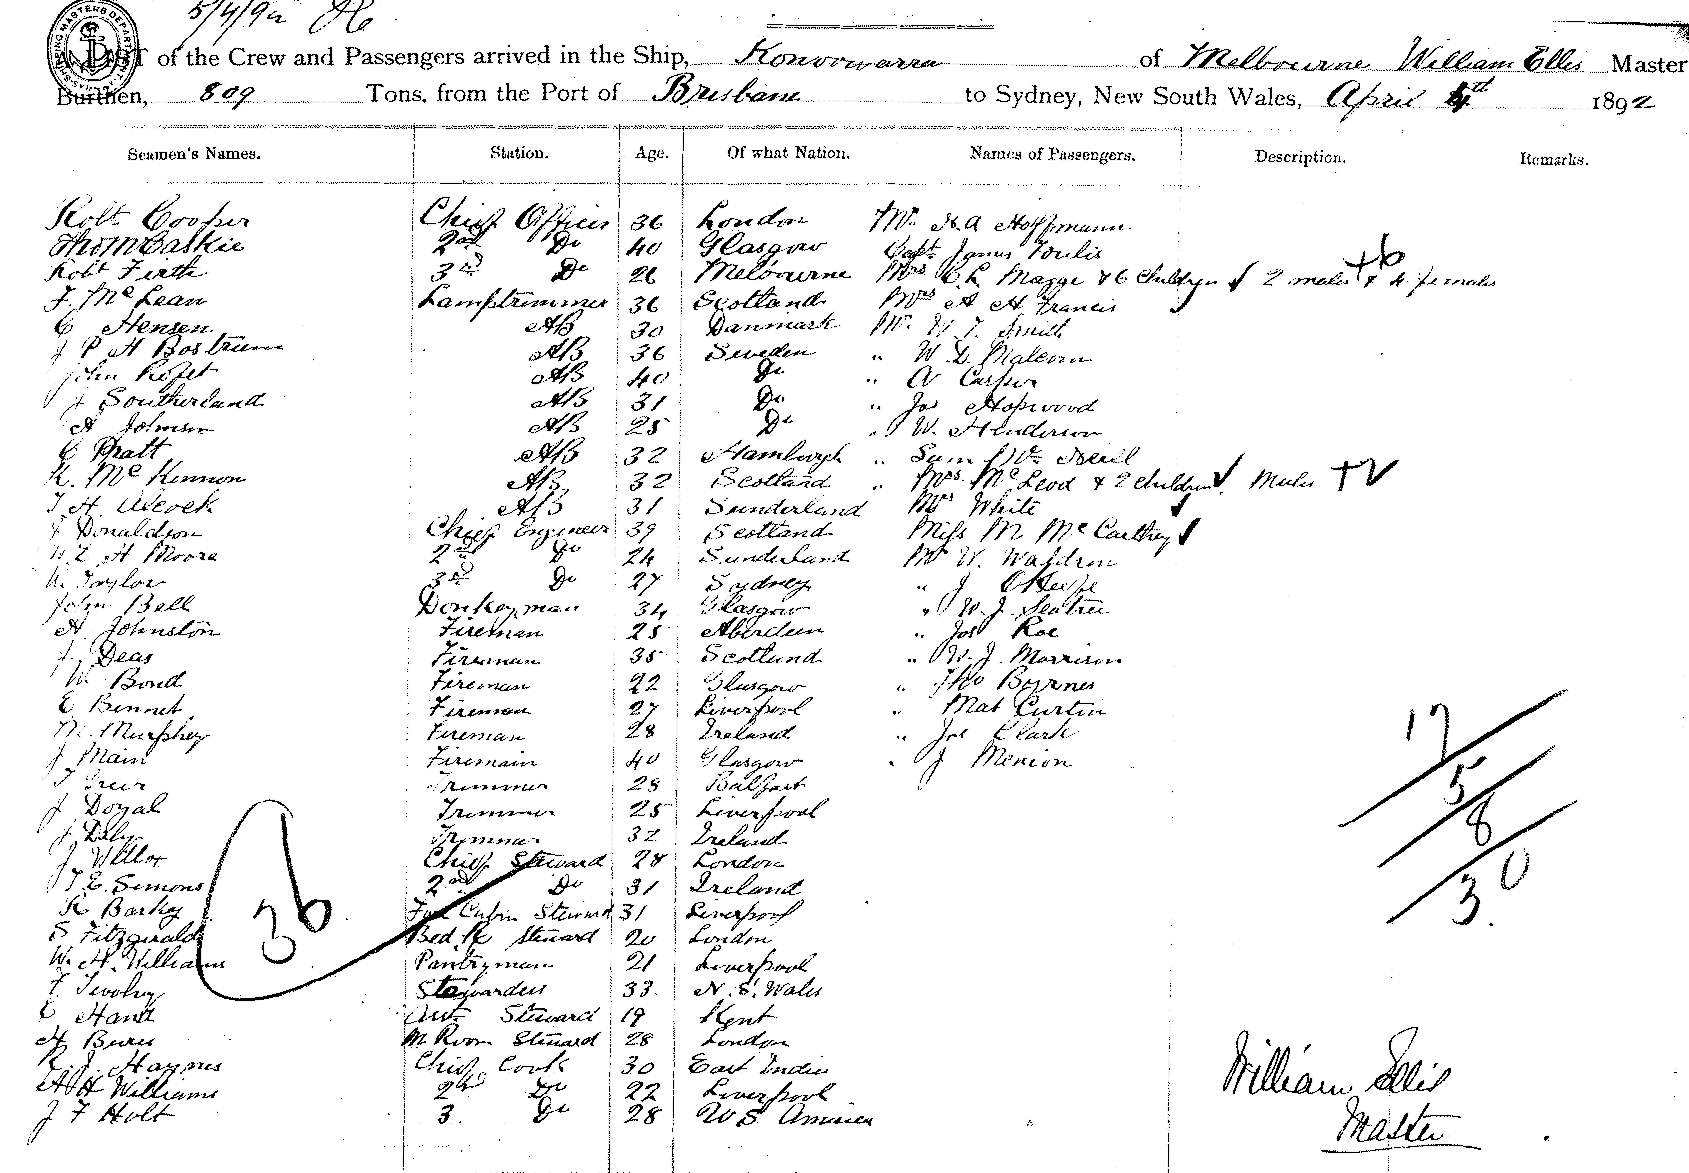 5/4/92
A LIST of the Crew and Passengers arrived in the Ship, Konoowarra of Melbourne William Ellis Master
Burthen, 809 Tons, from the Port of Brisbane to Sydney, New South Wales, April 4th 1892
Seamen's Names. Station. Age. Of what Nation. Names of Passengers. Description. Remarks.
Robt Cooper Chief Officer 36 London Mr. H. A Hoffmann
Thom Caskie 2nd Do 40 Glasgow Capt James Foulis
Robt Firth 3rd Do 26 Melbourne Mrs C. L. Magge & 6 Children 2 males & 4 females
J. McLean Lamptrimmer 36 Scotland Mrs A H. Francis
C Hensen AB 30 Danmark Mr. W J. Smith
J P H Bostrum AB 36 Sweden " W. D. Malcom
John AB 40 Do "
J Southerland AB 31 Do " Jas Hopwood
A Johnson AB 25 Do " W. Henderson
C Pratt AB 32 Hamburgh "
K. McKennon AB 32 Scotland " Mrs. McLeod & 2 Children Males
T H. Alcock AB 31 Sunderland Mrs White
J Donaldson Chief Engineer 39 Scotland Miss M McCarthey
W. E H Moore 2nd Do 24 Sunderland Mr W. Waldron
W. Taylor 3rd Do 27 Sydney " J OKeefe
John Bell Donkeyman 34 Glasgow " W. J. Seatree
A. Johnston Fireman 25 Aberdeen " Jos Roe
J. Deas Fireman 35 Scotland " W. J. Morrison
W. Bond Fireman 22 Glasgow " Tho Byrnes
E Bennet Fireman 27 Liverpool " Mat Curtin
M. Murphey Fireman 28 Ireland " Jos Clark
J Main Firemain 40 Glasgow " J Menion
T Greer Trimmer 28 Balfast
J Doyal Trimmer 25 Liverpool
J. Daly Trimmer 32 Ireland
J Willox Chief Steward 28 London
T E. Simons 2nd Do 31 Ireland
R Barky Fore Cabin Steward 31 Liverpool
S Fitzgirald Bed Rm Steward 20 London
W. H. Williams Pantryman 21 Liverpool
F. Stewardess 33 N. S. Wales
E Hand Asst Steward 19 Kent
H Burn M Room Steward 28 London
R. J. Haynes Chief Cook 30 East Indies
A H Williams 2nd Do 22 Liverpool
J F Holt 3. Do 28 U S America
36
17
5
8
30
William Ellis
Master